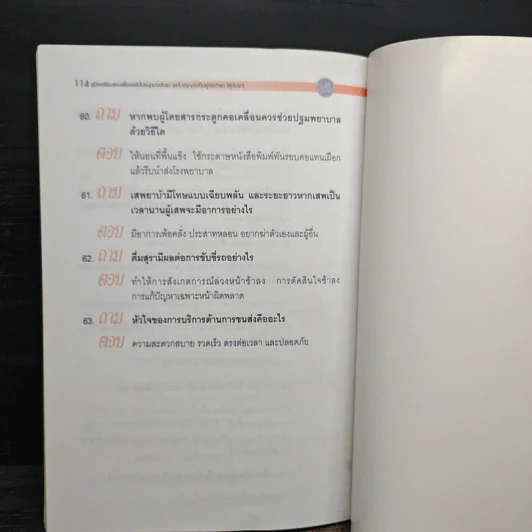 114 คู่มือเตรียมสอบเพื่อขอรับใบอนุญาตขับรถ และใบอนุญาตเป็นผู้ประจำรถ
60. ถาม หากพบผู้โดยสารกระดูกคอเคลื่อนควรช่วยปฐมพยาบาล
ด้วยวิธีใด
ตอบ ให้นอนที่พื้นแข็ง ใช้กระดาษหนังสือพิมพ์พันรอบคอแทนเฝือก
แล้วรีบนำส่งโรงพยาบาล
61. ถาม เสพยาบ้ามีโทษแบบเฉียบพลัน และระยะยาวหากเสพเป็น
เวลานานผู้เสพจะมีอาการอย่างไร
ตอบ มีอาการเพ้อคลั่ง ประสาทหลอน อยากฆ่าตัวเองและผู้อื่น
62. ถาม ดื่มสุรามีผลต่อการขับขี่รถอย่างไร
ตอบ ทำให้การสังเกตการณ์ล่วงหน้าช้าลง การตัดสินใจช้าลง
การแก้ปัญหาเฉพาะหน้าผิดพลาด
63. ถาม หัวใจของการบริการด้านการขนส่งคืออะไร
ตอบ ความสะดวกสบาย รวดเร็ว ตรงต่อเวลา และปลอดภัย